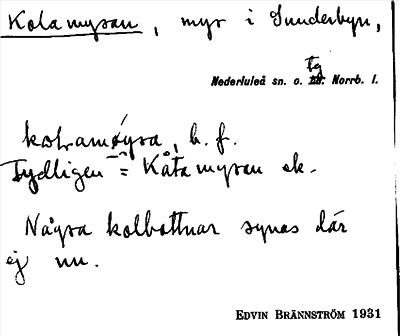 Kolamyran, myr i Sunderbyn,
tg
Nederluleå sn. o. Norrb. l.
b. f.
Tydligen = Kåtamyran ek.
Några kolbottnar synas där
ej nu.
EDVIN BRÄNNSTRÖM 1931